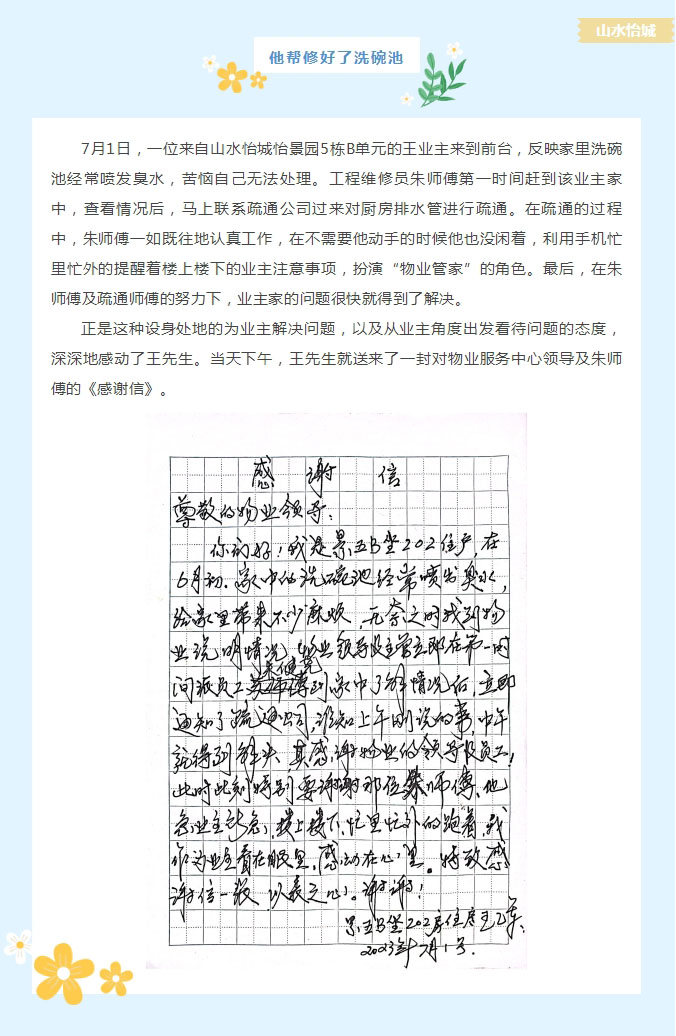 山水怡城
他帮修好了洗碗池
7月1日，一位来自山水怡城怡景园5栋B单元的王业主来到前台，反映家里洗碗
池经常喷发臭水，苦恼自己无法处理。工程维修员朱师傅第一时间赶到该业主家
中，查看情况后，马上联系疏通公司过来对厨房排水管进行疏通。在疏通的过程
中，朱师傅一如既往地认真工作，在不需要他动手的时候他也没闲着，利用手机忙
里忙外的提醒着楼上楼下的业主注意事项，扮演“物业管家”的角色。最后，在朱
师傅及疏通师傅的努力下，业主家的问题很快就得到了解决。
正是这种设身处地的为业主解决问题，以及从业主角度出发看待问题的态度，
深深地感动了王先生。当天下午，王先生就送来了一封对物业服务中心领导及朱师
傅的《感谢信》。
感谢信
尊敬的物业领导：
你们好！我是景五B坐202住户，在
6月初．家中的洗碗池经常喷发臭水，
给家里带来不少麻烦，无奈之时找到物
业说明情况，物业领导及主管立即在第一时
间派员工到家中了解情况后，立即
通知了疏通公司，谁知上午刚说的事，中午
就得到解决，真感谢物业的领导及员工！
此时此刻特别要谢谢那位朱师傅、他
急业主所急，楼上楼下，忙里忙外的跑着，我
作为业主看在眼里，感动在心里。特致感
谢信一封，以表之心。谢谢！
景五B坐202房住户王
2023年7月1号．